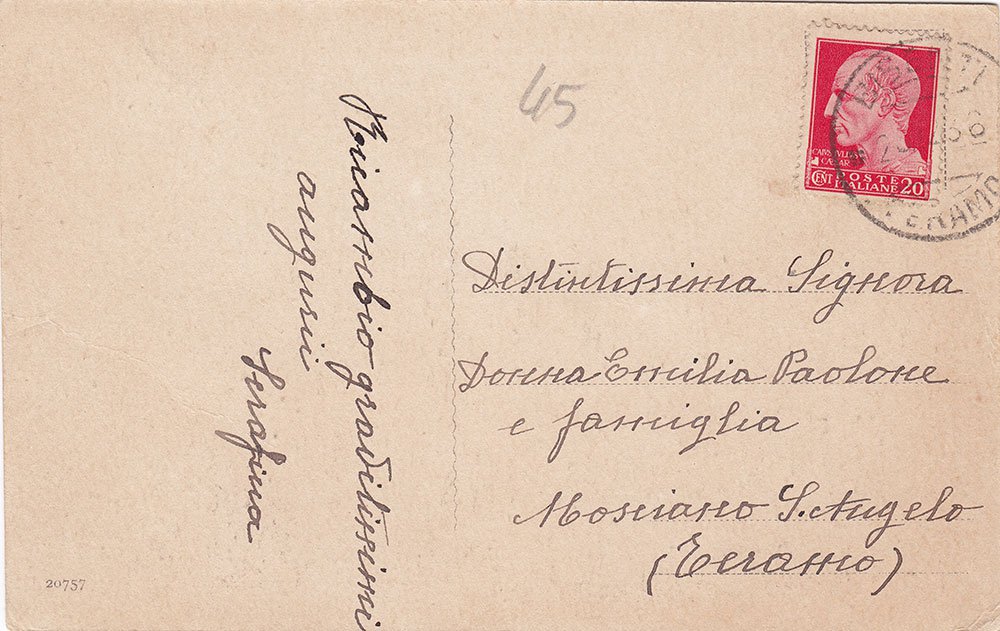 45
Ricambio graditissimi
auguri
Serafina
20757
CENT POSTE ITALIANE 20
TERAMO
Distintissima Signora
Donna Emilia Paolone
e famiglia
Mosciano S. Angelo
(Teramo)